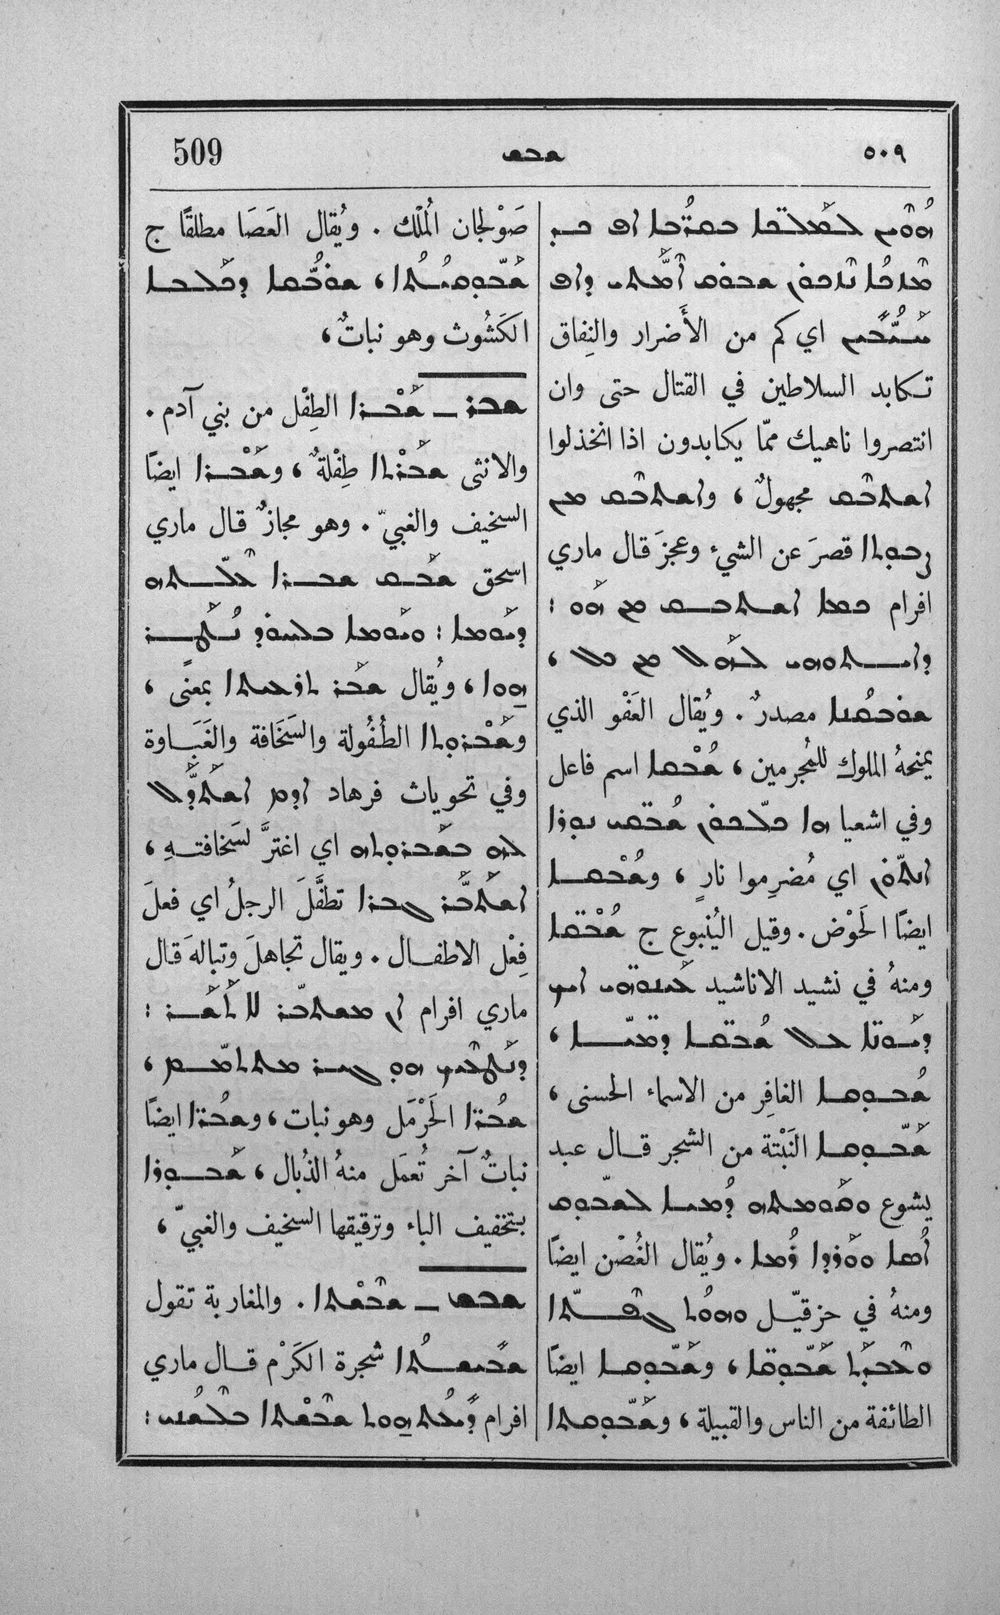 509 ܫܒܫ ٥٠٩
ܗܘܝܢ ܠܡܠܟ̈ܐ ܒܩܪ̈ܒܐ ܐܦ ܟܕ
ܫܒܘܩ ܐܡܬܝ ܕܐܦ
ܚܝܒܝܢ اي كم من الأَضرار والنِفاق
تكابد السلاطين في القتال حتى وان
انتصروا ناهيك ممّا يكابدون اذا انخذلوا
ܐܫܬܒܩ مجهولٌ ، ܘܐܫܬܒܩ ܡܢ
ܨܒܘܬܐ قصرَ عن الشيء وعجزَ قال ماري
افرام ܒܡܐ ܐܫܬܒܩ ܡܢ ܗܘ :
ܕܐܝܬܘܗܝ ܠܗܠ ܡܢ ܟܠ ،
ܫܘܒܩܢܐ مصدرٌ . ويُقال العَفْو الذي
يمنحهُ الملوك للمُجرمين ، ܫܒܩܐ اسم فاعل
وفي اشعيا ܗܐ ܟܠܟܘܢ ܫܒ̈ܩܝ ܢܘܪܐ
ܐܢܬܘܢ اي مُضرِموا نارٍ ، ܘܫܒܩܐ
ايضًا الحَوْض . وقيل اليُنبوع ج ܫܒ̈ܩܐ
ومنهُ في نشيد الاناشيد ܥܝܢܘ̈ܗܝ ܐܝܟ
ܕܝܘ̈ܢܐ ܥܠ ܫܒ̈ܩܐ ܕܡ̈ܝܐ ،
ܫܒܘܩܐ الغافِر من الاسماء الحسنى ،
ܫܒܘܩܐ النَبْتة من الشجر قال عبد
يشوع ܘܩܘܡܬܗ ܕܡܝܐ ܠܫܒܘܩ
ܐܣܐ ܘܘܪܕܐ ܪܡܐ . ويُقال الغُصْن ايضًا
ومنهُ في حزقيّل ܘܗܘܬ ܓܦܬܐ
ܘܥܒܕܬ ܫܒܘ̈ܩܐ ، ܘܫܒܘܩܐ ايضًا
الطائفة من الناس والقبيلة ، ܘܫܒܘܩܬܐ
صَوْلجان المُلْك . ويُقال العَصَا مطلقًا ج
ܫܒܘܩܝܬܐ ، ܫܘܒܩܐ ܕܟܠܒܐ
الكَشُوث وهو نباتٌ ،
ܫܒܪ ـ ܫܒܪܐ الطِفْل من بني آدم .
والانثى ܫܒܪܬܐ طِفْلةٌ ، ܘܫܒܪܐ ايضًا
السخيف والغبيّ . وهو مجازٌ قال ماري
اسحق ܫܒܩ ܫܒܪܐ ܥܠܬܗ
ܕܝܘܡܐ : ܘܝܘܡܐ ܒܠܚܘܕ ܢܛܪ
ܗܘܐ ، ويُقال ܫܒܪ ܬܪܥܝܬܐ بمعنًى ،
ܘܫܒܪܘܬܐ الطُفُولة والسَخَافة والغَبَاوة
وفي تحويات فرهاد ܐܕܡ ܐܫܬܕܠ
ܠܗ ܒܫܒܪܘܬܗ اي اغترَّ لسَخافتهِ ،
ܐܫܬܒܪ ܓܒܪܐ تطفَّلَ الرجلُ اي فعلَ
فِعْل الاطفال . ويقال تجاهلَ وتبالهَ قال
ماري افرام ܐܢ ܡܫܬܒܪ ܠܐ :
ܗܘ ܓܝܪ ،
ܫܒܪ̈ܐ الحَرْمَل وهو نبات ، ܘܫܒܪ̈ܐ ايضًا
نباتٌ آخر تُعمَل منهُ الذُبال ، ܫܒܘܪܐ
بتخفيف الباء وترقيقها السخيف والغبيّ ،
ܫܒܫ ـ ܫܒܫܬܐ . والمغاربة تقول
ܫܒܝܫܬܐ شجرة الكَرْم قال ماري
افرام ܫܒܫܬܐ :